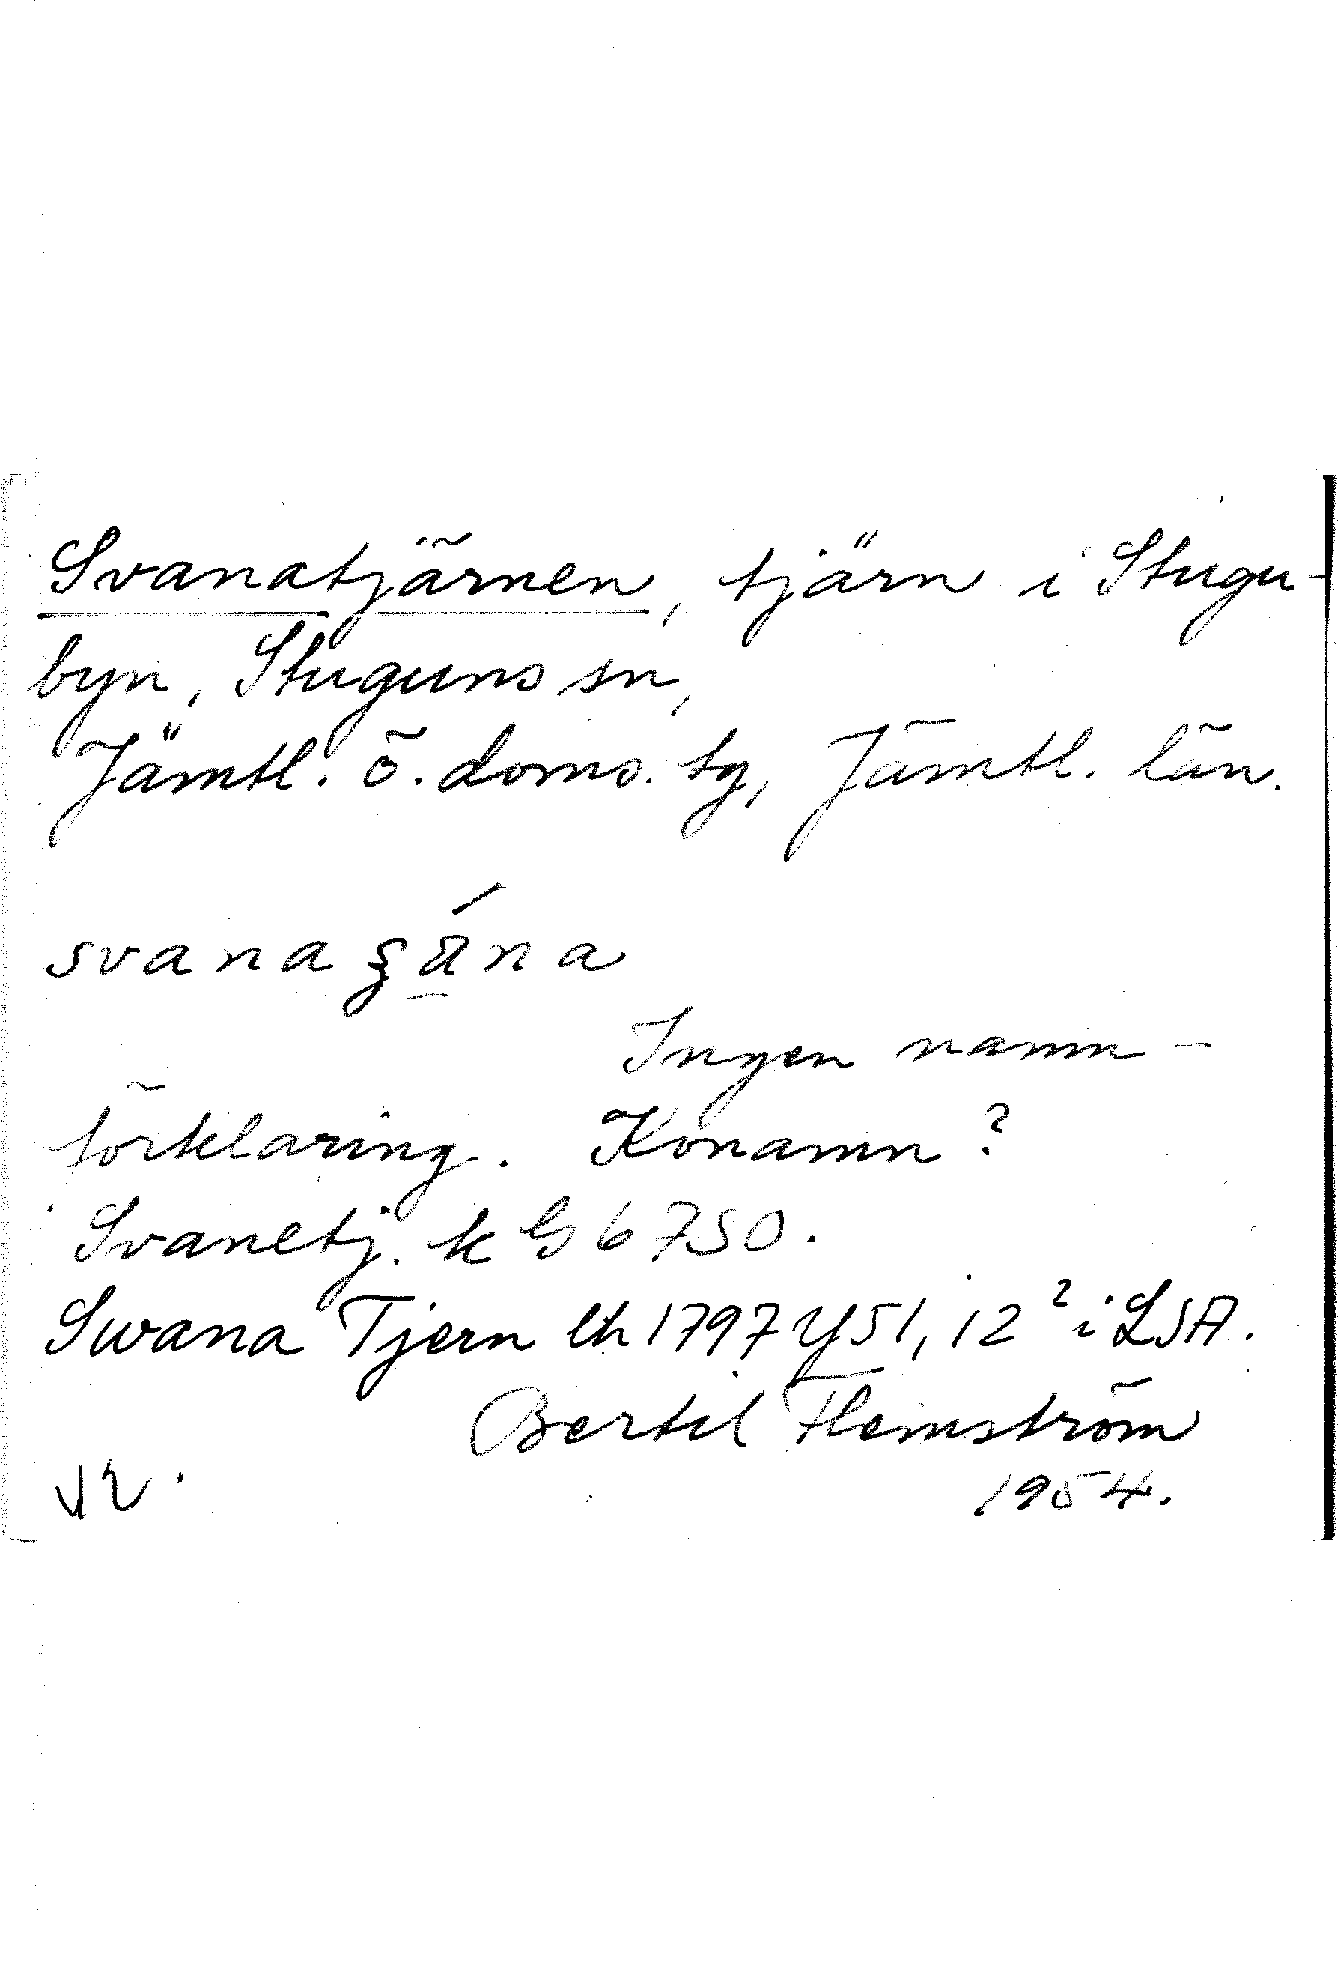 Svanatjärnen, tjärn i Stugu-
byn, Stuguns sn,
Jämtl. ö. doms. tg, Jämtl. län.
svana
Ingen namn-
förklaring. Konamn?
Svanetj. k G 6750.
Swana Tjern lh 1797 Y51, 12² i LSA.
Bertil Flemström
1954.